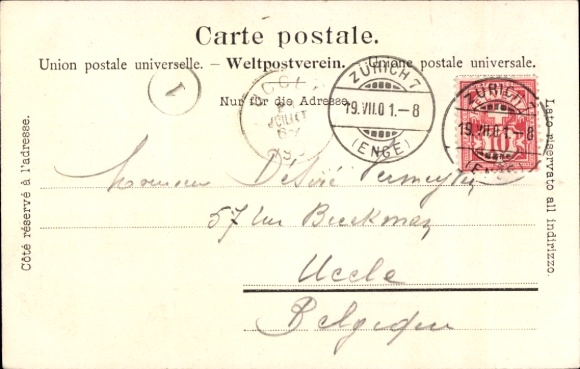 Carte postale.
Union postale universelle. – Weltpostverein. – Unione postale universale.
Nur für die Adresse.
1
JUILLET
ZÜRICH 7
19.VII.01.–8
(ENGE)
ZÜRICH
19.VII.01.–8
(ENGE)
10
Côté réservé à l'adresse.
Lato riservato all indirizzo.
Monsieur Désiré
57 rue Beeckman
Uccle
Belgique